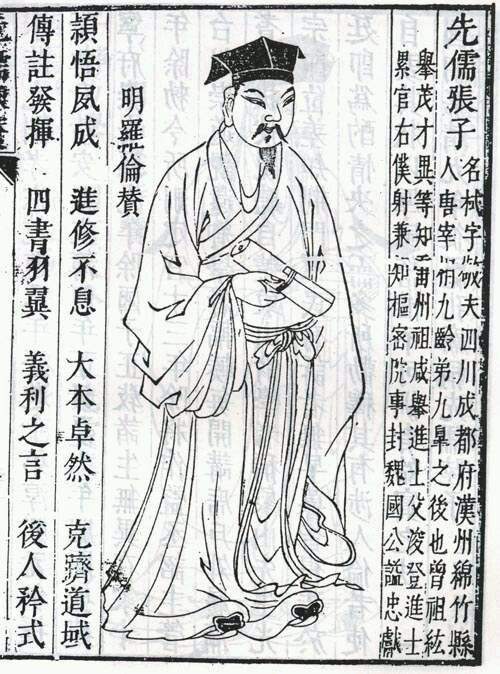 先儒張子
名栻字敬夫四川成都府漢州綿竹縣
人唐宰相九齡弟九皐之後也曾祖紘
舉茂才異等知雷州祖咸舉進士父浚登進士
累官右僕射兼知樞密院事封魏國公謚忠獻
明羅倫贊
穎悟夙成 進修不息 大本卓然 克躋道域
傳註發揮 四書羽翼 義利之言 後人矜式